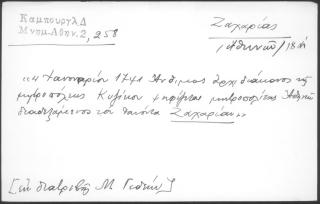 Καμπούρογλ Δ
Μνημ. Αθην. 2, 258
Ζαχαρίας
(Αθηνών) 18 αι
"4 Ιανουαρίου 1741 Άνθιμος αρχιδιάκονος της
μητροπόλεως Κυζίκου εψηφίσθη μητροπολίτης Αθηνών
διαδεξάμενος τον θανόντα Ζαχαρίαν"
[εκ διατριβής Μ Γεδεών]